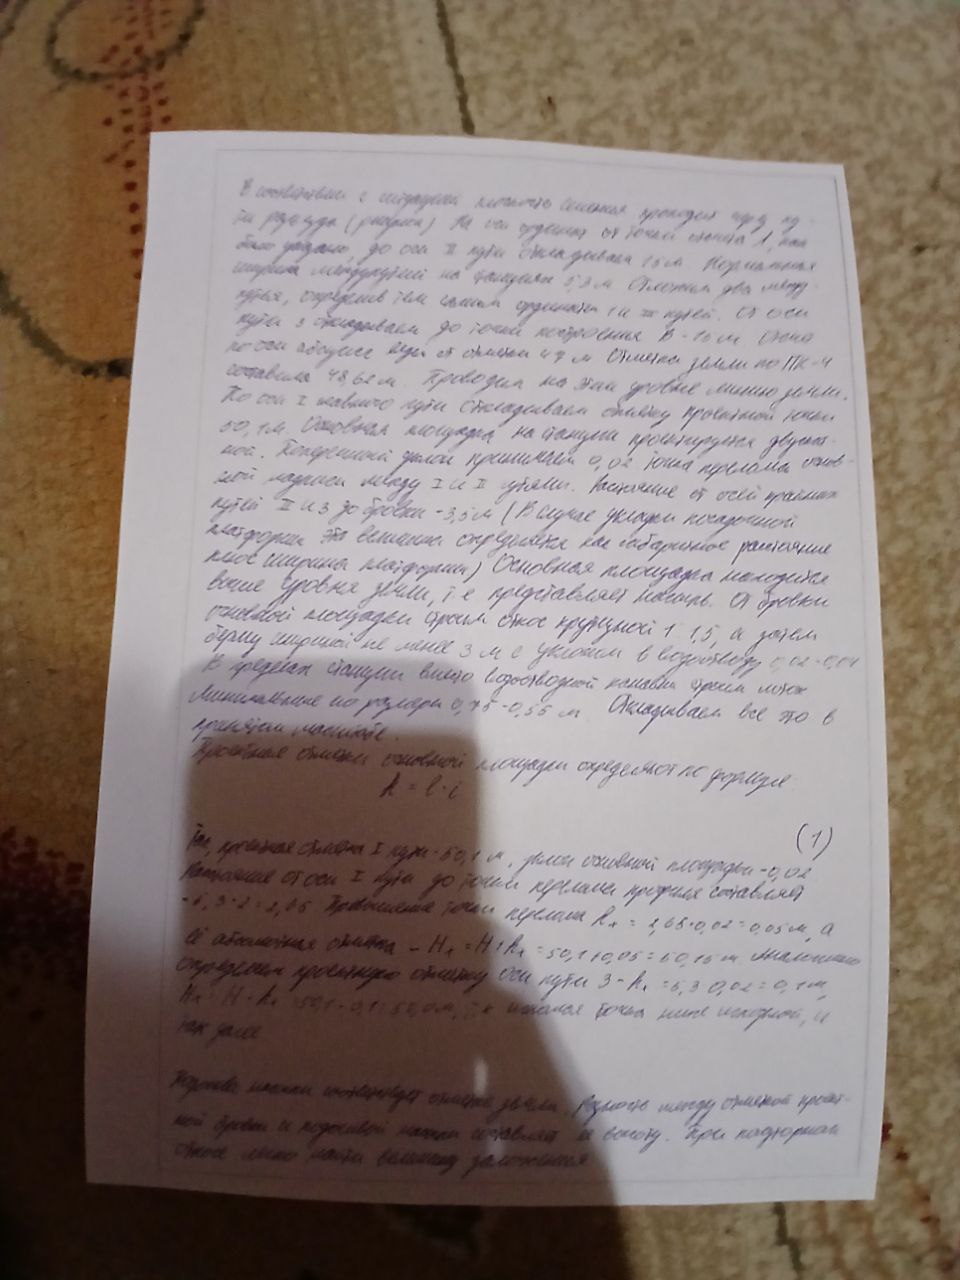 В соответствии с ситуацией плоскость сечения проходит через пу-
ти разъезда На оси ординат от точки отсчета А, как
было указано, до оси II пути откладываем 15 м. Нормальная
ширина междупутий на станциях 5,3 м. Отложим два между-
путья, определив тем самым ординаты 1 и III путей. От оси
пути 3 откладываем до точки построения В - 15 м. Отсчет
по оси абсцисс ведем от отметки 47 м Отметка земли по ПК-4
составила 48,62 м. Проводим на этом уровне линию земли.
По оси I главного пути откладываем отметку проектной точки
50,1 м. Основная площадка на станции проектируется двускат-
ной. Поперечный уклон принимаем 0,02 точка перелома основ-
ной между I и II путями. Расстояние от осей крайних
путей II и 3 до бровки - 3,5 м (В случае укладки посадочной
платформы эта величина определяется как габаритное расстояние
плюс ширина платформы) Основная площадка находится
выше уровня земли, т е представляет насыпь. От бровки
основной площадки строим откос крутизной 1 1,5, а затем
берму шириной не менее 3 м с уклоном в водоотводу 0,02-0,04
В пределах станции вместо водоотводной канавы строим лоток
Минимальные по размеры 0,75-0,55 м. Откладываем все это в
принятом масштабе.
Проектная отметки основной площадки определяют по формуле
h = l · i
(1)
Так, проектная отметка I пути - 50,1 м, уклон основной площадки - 0,02
Расстояние от оси I пути до точки перелома профиля составляет
- 5,3 2 = 2,65 Превышение точки перелома h₁ = 2,65·0,02 = 0,05 м, а
её абсолютная отметка - H₁ = H+h₁ = 50,1+0,05 = 50,15 м Аналогично
определяем проектную отметку оси пути 3 - h₁ = 5,3 0,02 = 0,1 м,
H₁ = H - h₁ = 50,1 - 0,1 = 50,0 м, т к искомая точка ниже исходной, и
так далее
Подошва насыпи соответствует отметке земли, Разность между отметкой проект-
ной бровки и подошвой насыпи составляет её высоту. При полуторном
откосе легко найти величину заложения